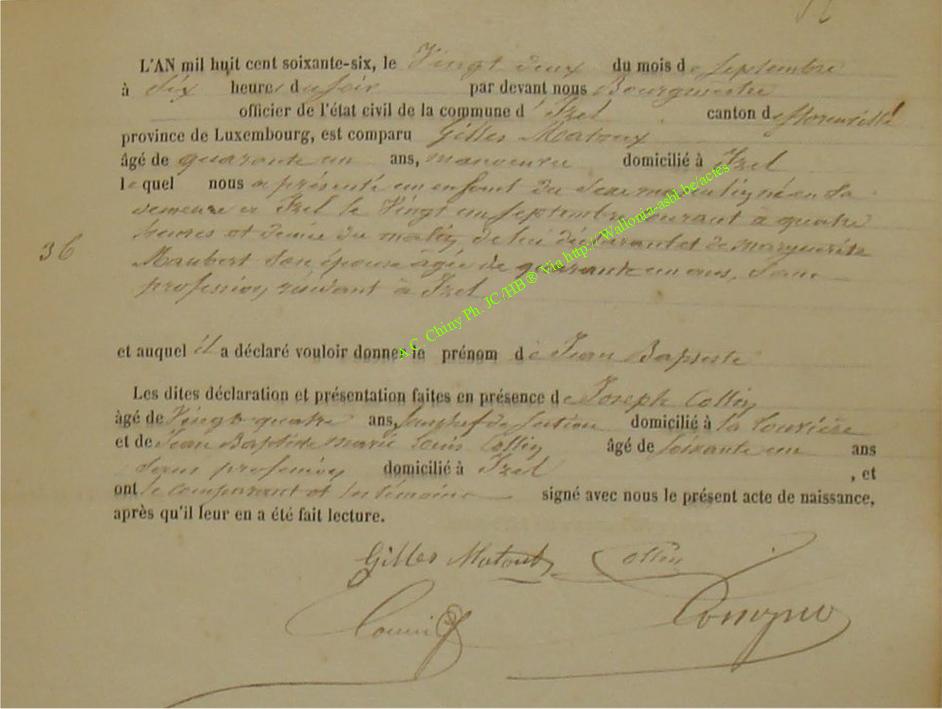 L'AN mil huit cent soixante-six, le Vingt deux du mois de septembre
à Six heures du soir par devant nous Bourgmestre
officier de l'état civil de la commune d'Izel canton de florenville
province de Luxembourg, est comparu Gilles Matoux
âgé de quarante un ans, manoeuvre domicilié à Izel
lequel nous a présenté un enfant du sexe masculin né en sa
demeure à Izel le Vingt un septembre courant a quatre
heures et demie du matin de lui déclarant et de marguerite
36
Maubert son épouse agée de quarante un ans, sans
profession résidant à Izel
et auquel il a déclaré vouloir donner le prénom de Jean Baptiste
Les dites déclaration et présentation faites en présence de Joseph Collin
âgé de Vingt-quatre ans, chef de section domicilié à la Louvière
et de Jean Baptiste marie Louis Collin âgé de soixante un ans
sans profession domicilié à Izel , et
ont le comparant et les témoins signé avec nous le présent acte de naissance,
après qu'il leur en a été fait lecture.
Gilles Matoux Collin
A.C. Chiny Ph. JC./HB® Via http://Wallonia-asbl.be/actes